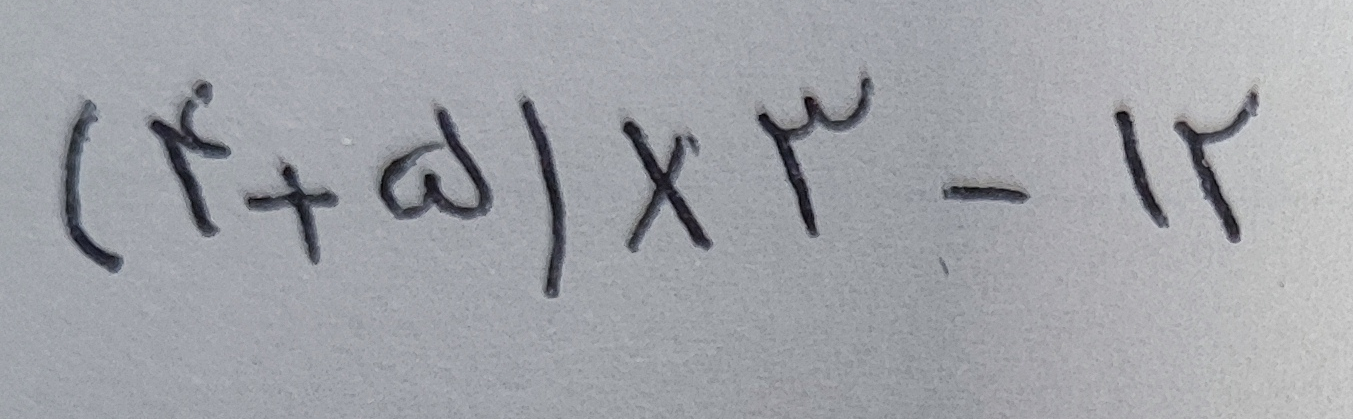 (۴+۵)×۳-۱۲